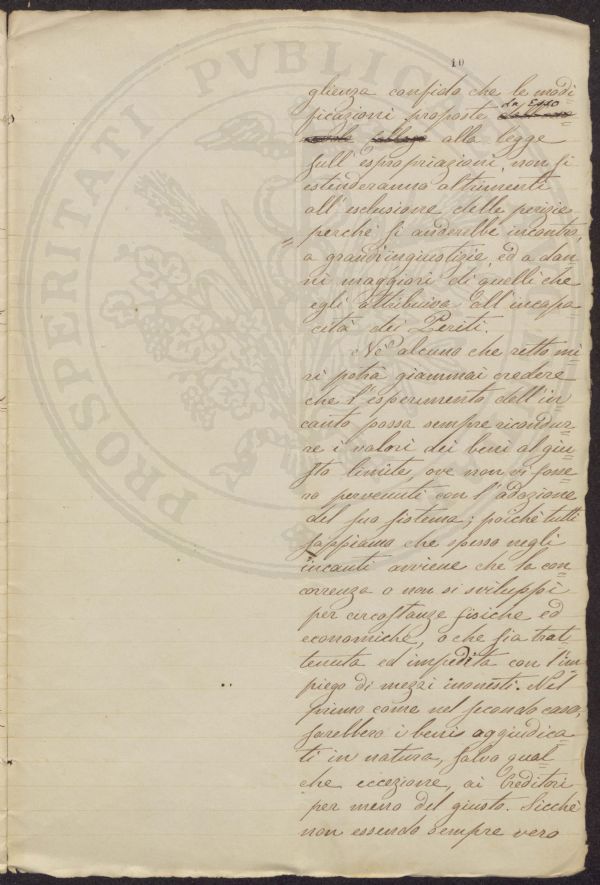 10
glienza confido che le modi=
ficazioni proposte da Esso
alla legge
sull'espropriazioni non si
estenderanno altrimenti
all'esclusione delle perizie
perchè si anderebbe incontro,
a grandi ingiustizie, ed a dan
ni maggiori di quelli che
egli attribuisse all'incapa
cità dei Periti.
Nè alcuno che retto mi
ri potrà giammai credere
che l'esperimento dell'in
canto possa sempre ricondur=
re i valori dei beni al giu=
sto limite, ove non vi fosse=
ro pervenuti con l'adozione
del suo sistema; poichè tutti
sappiamo che spesso negli
incanti avviene che la con=
correnza o non si sviluppi
per circostanze fisiche ed
economiche, o che sia trat
tenuta ed impedita con l'im
piego di mezzi inonesti. Nel
primo come nel secondo caso,
sarebbero i beni aggiudica=
ti in natura, salvo qual=
che eccezione, ai Creditori
per meno del giusto. Sicchè
non essendo sempre vero
PROSPERITATI PUBLICAE